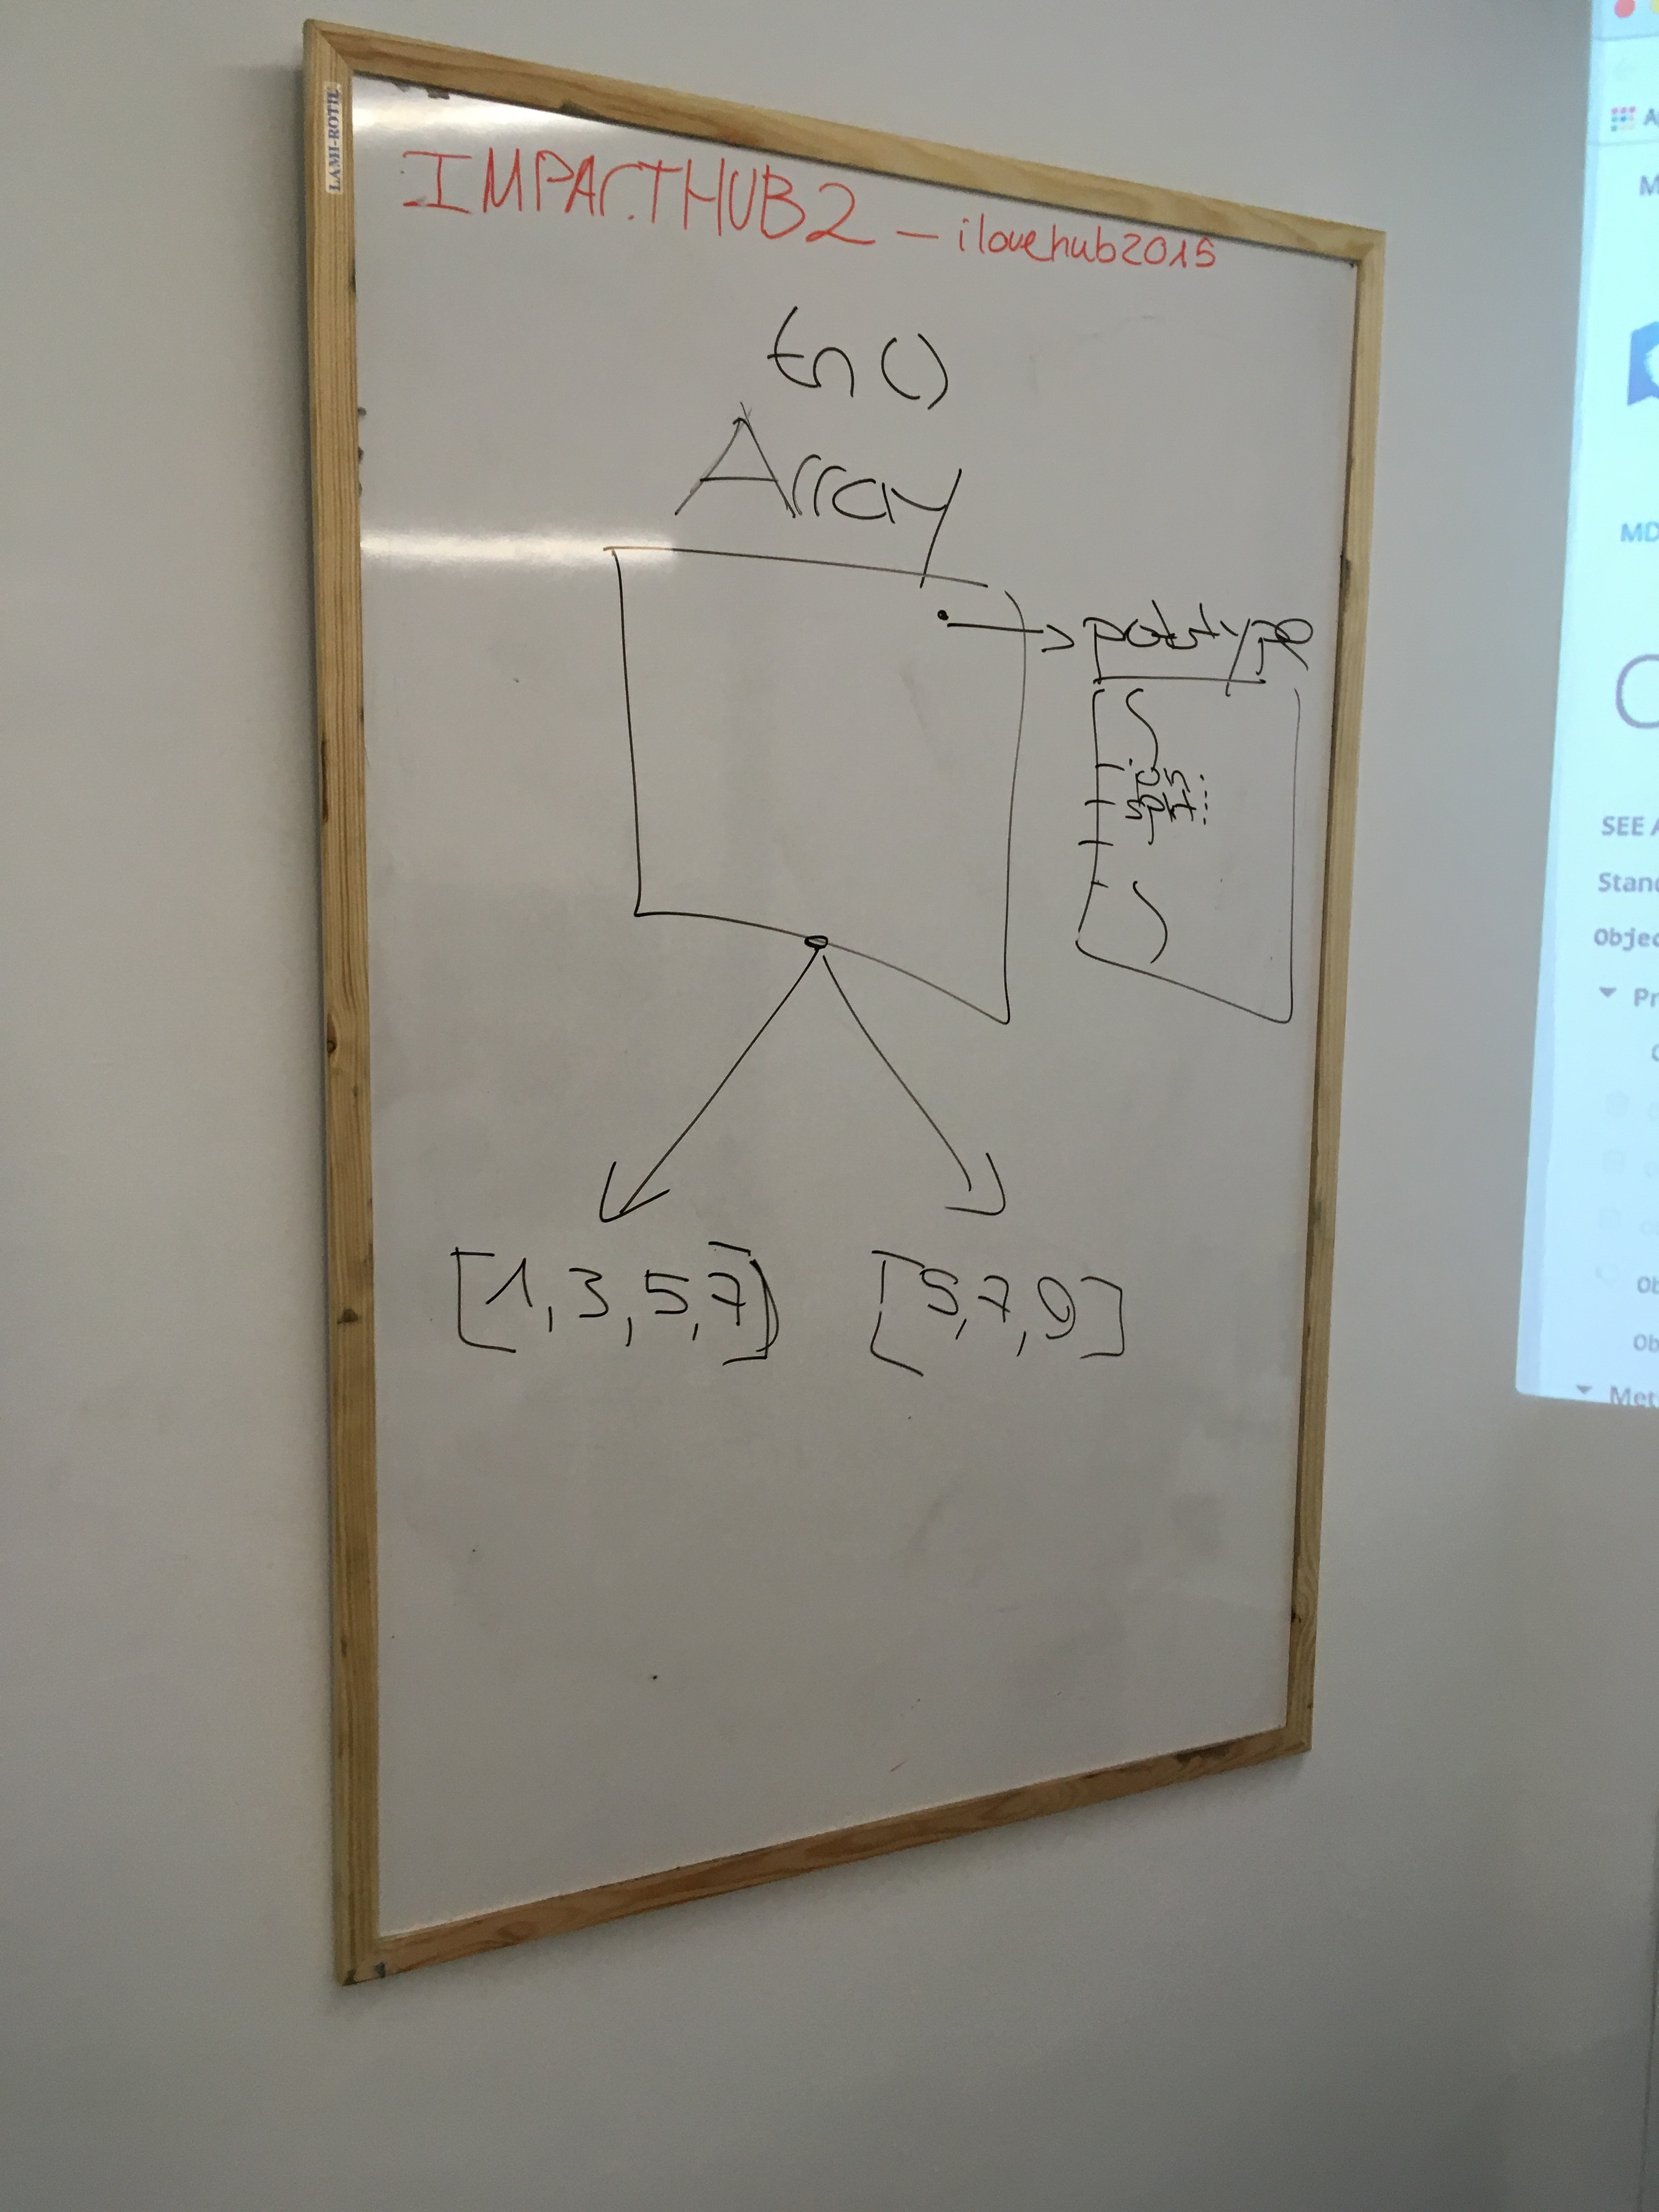 LAMI-ROTIL
IMPACTHUB2 - ilovehub2015
fn ()
Array
pototype
[1, 3, 5, 7]
[5, 7, 9]
MD
SEE A
Stand
Objec
Pr
Ob
Ob
Met